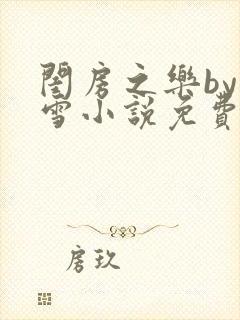 閨房之樂by
雪小說免費
房玖